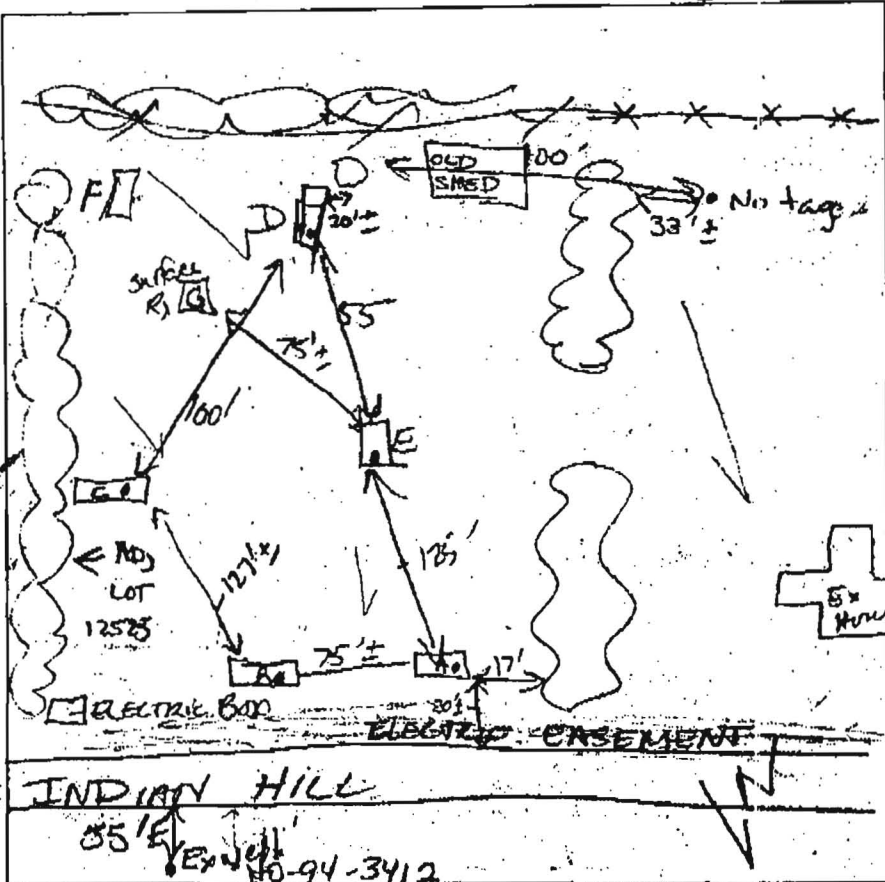 OLD
SHED
100'
F
D
20'±
No tag
33'±
surface
G
55'
75'±
100'
E
C
← ADJ
LOT
12525
127'±
125'
EX
B
75'±
A
17'
20'±
ELECTRIC BOX
ELECTRIC EASEMENT
INDIAN HILL
55'
Ex Well
HO-94-3412